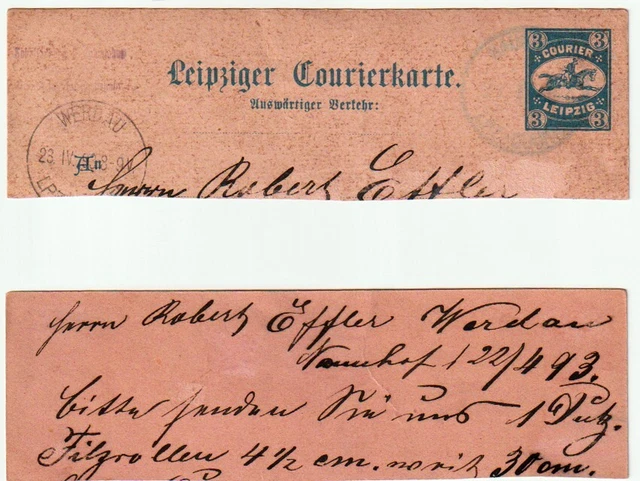 3 COURIER 3
Leipziger Courierkarte.
3 LEIPZIG 3
Auswärtiger Verkehr:
WERDAU
23. IV. 8-9V
An
Herrn Robert Effler
Herrn Robert Effler Werdau
Naunhof 22/4 93.
bitte senden Sie uns 1 Dutz.
Filzrollen 4½ cm. weit 30 cm.